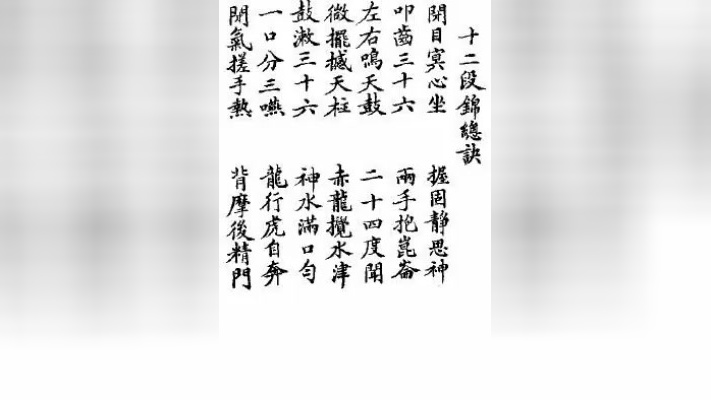 十二段錦總訣
閉目冥心坐 握固靜思神
叩齒三十六 兩手抱崑崙
左右鳴天鼓 二十四度聞
微擺撼天柱 赤龍攪水津
鼓漱三十六 神水滿口勻
一口分三嚥 龍行虎自奔
閉氣搓手熱 背摩後精門